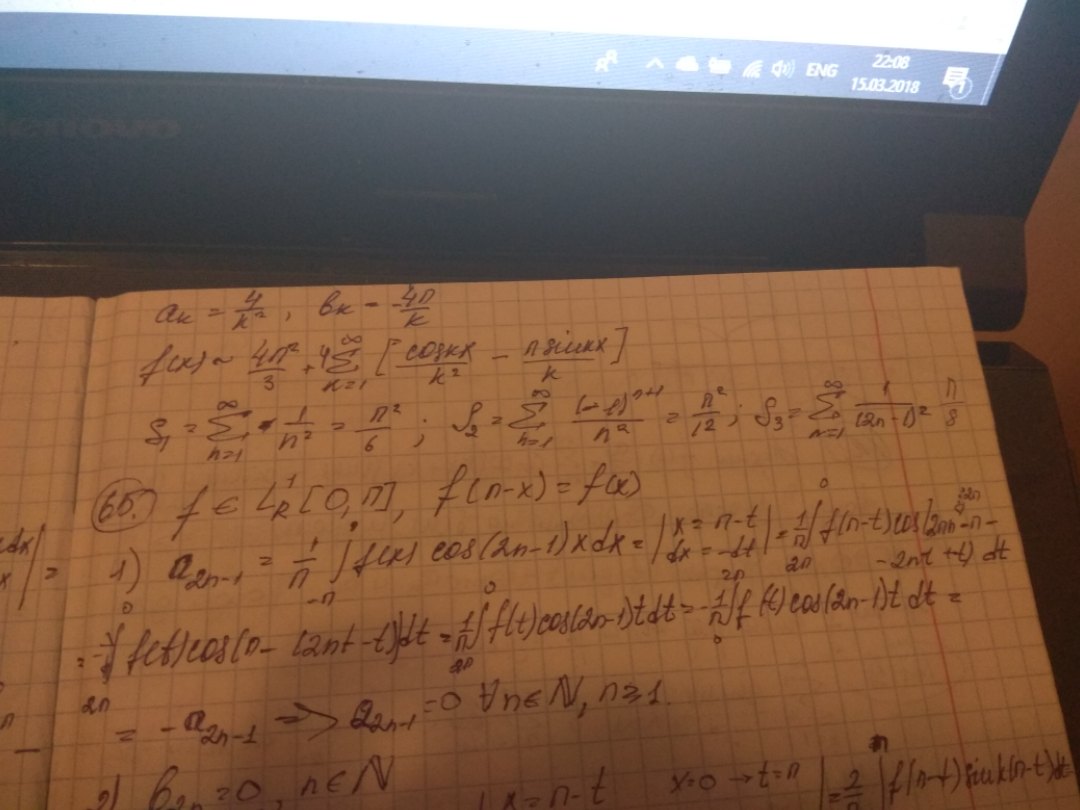 ENG
22:08
15.03.2018
Lenovo
aₖ = 4/k², bₖ = -4π/k
f(x) ~ 4π²/3 + 4∑_{k=1}^{∞} [cos kx/k² - π sin kx/k]
S₁ = ∑_{n=1}^{∞} 1/n² = π²/6; S₂ = ∑_{n=1}^{∞} (-1)^{n+1}/n² = π²/12; S₃ = ∑_{n=1}^{∞} 1/(2n-1)² π/8
f ∈ L¹_R[0,π], f(π-x) = f(x)
1) a_{2n-1} = 1/π ∫_{-π} f(x) cos(2n-1)x dx = |x = π-t dx = -dt| = 1/π ∫_{2π}^{0} f(π-t) cos(2πn-π-
-2nt+t) dt
f(t) cos(π-(2nt-t)) dt = 1/π ∫_{2π}^{0} f(t) cos(2n-1)t dt = -1/π ∫_{0}^{2π} f(t) cos(2n-1)t dt =
= -a_{2n-1} => a_{2n-1} = 0 ∀n∈ℕ, n≥1.
2) b_{2n} = 0, n∈ℕ
x = π-t x=0 → t=π f(π-t) sin k(π-t) dt